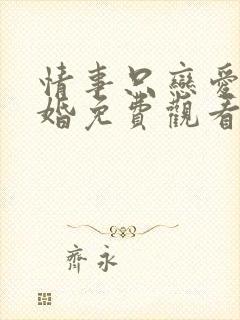 情事只戀愛
婚免費觀看
齊永